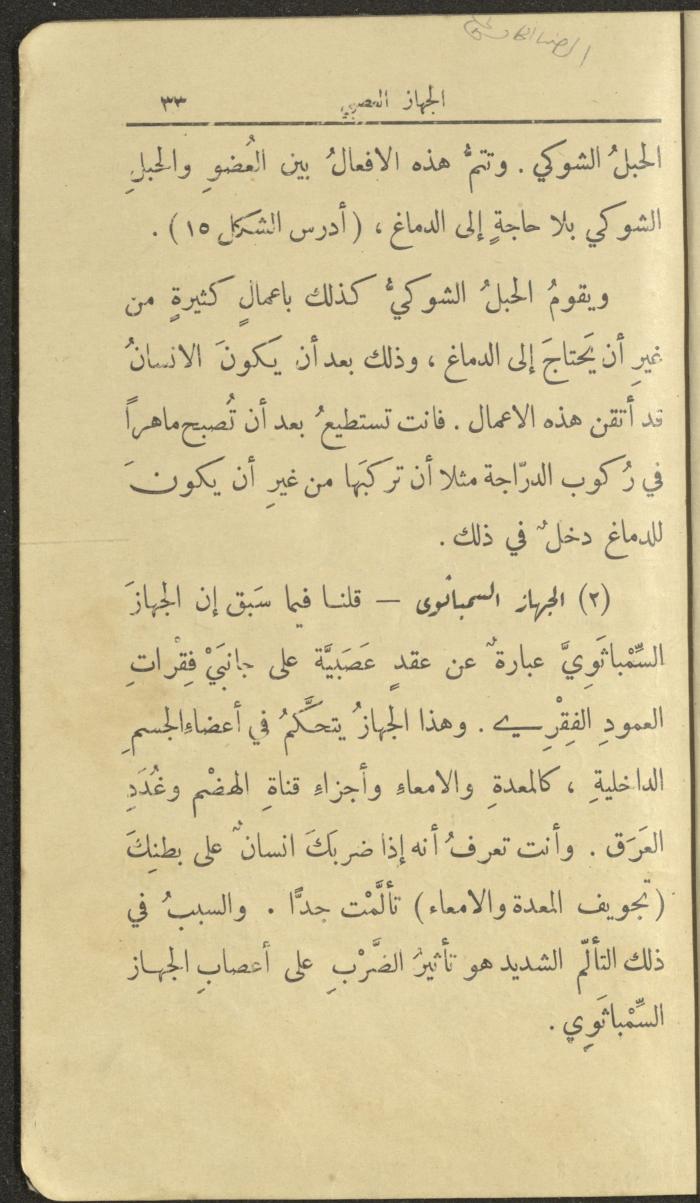 الجهاز العصبي ٣٣
الحبلُ الشوكي . وتتمُّ هذه الافعالُ بين العُضوِ والحبلِ
الشوكي بلا حاجةٍ إلى الدماغ ، ( أدرس الشكل ١٥ ) .
ويقومُ الحبلُ الشوكيُّ كذلك باعمالٍ كثيرةٍ من
غيرِ أن يَحتاجَ إلى الدماغ ، وذلك بعد أن يَكونَ الانسانُ
قد أتقن هذه الاعمال . فانت تستطيعُ بعد أن تُصبح ماهراً
في رُكوب الدرّاجة مثلا أن تركبَها من غيرِ أن يكونَ
للدماغ دخلٌ في ذلك .
(٢) الجهاز السمباثوى — قلنا فيما سَبق إن الجهازَ
السِّمْباثَوِيَّ عبارةٌ عن عقدٍ عَصَبيَّة على جانبَيْ فِقْراتِ
العمودِ الفِقْرِي . وهذا الجهازُ يتحكَّمُ في أعضاءِ الجسمِ
الداخليةِ ، كالمعدةِ والامعاءِ وأجزاءِ قناةِ الهضْم وغُدَدِ
العَرَق . وأنت تعرفُ أنه إذا ضربَكَ انسانٌ على بطنِكَ
( تجويف المعدة والامعاء ) تألَّمْت جدًّا . والسببُ في
ذلك التألّم الشديد هو تأثيرُ الضَّرْبِ على أعصابِ الجهاز
السِّمْباثَوِي .